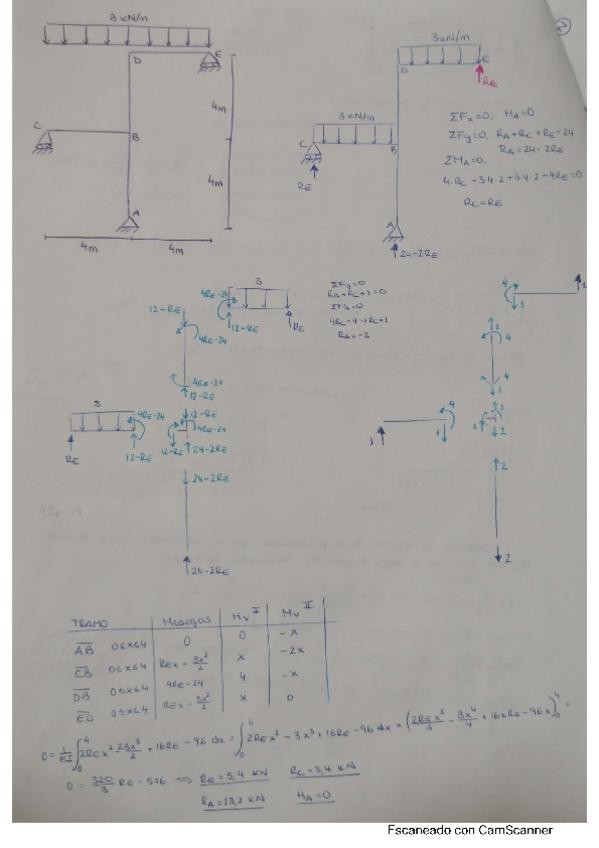 3 kN/m
D
E
4m
C
B
4m
A
4m
4m
2
3kN/m
D
E
RE
3 kN/m
C
B
RE
A
24-2RE
ΣFx=0, HA=0
ΣFy=0, RA+RC+RE=24
RA=24-2RE
ΣMA=0,
4·RC-3·4·2+3·4·2-4RE=0
RC=RE
3
4RE-24
12-RE
RE
12-RE
4RE-24
ΣFy=0
RA+RC+1=0
ΣMA=0
RA=-2
4
1
1
4
4RE-24
12-RE
4
1
4RE-24
12-RE
RE
12-RE
4RE-24
12-RE
24-2RE
4
1
1
2
24-2RE
2
24-2RE
2
TRAMO Mcargas Mv I Mv II
AB 0≤x≤4 0 0 -x
CB 0≤x≤4 REx - 3x²/2 x -2x
DB 0≤x≤4 4RE-24 4 -x
ED 0≤x≤4 REx - 3x²/2 x 0
0 = 1/EI ∫₀⁴ 2REx² - 2·3x³/2 + 16RE - 96 dx = ∫₀⁴ 2REx² - 3x³ + 16RE - 96 dx = (2REx³/3 - 3x⁴/4 + 16xRE - 96x)₀⁴ =
0 = 320/3 RE - 576 ⇒ RE = 5,4 kN RC = 5,4 kN
RA = 13,2 kN HA = 0
Escaneado con CamScanner